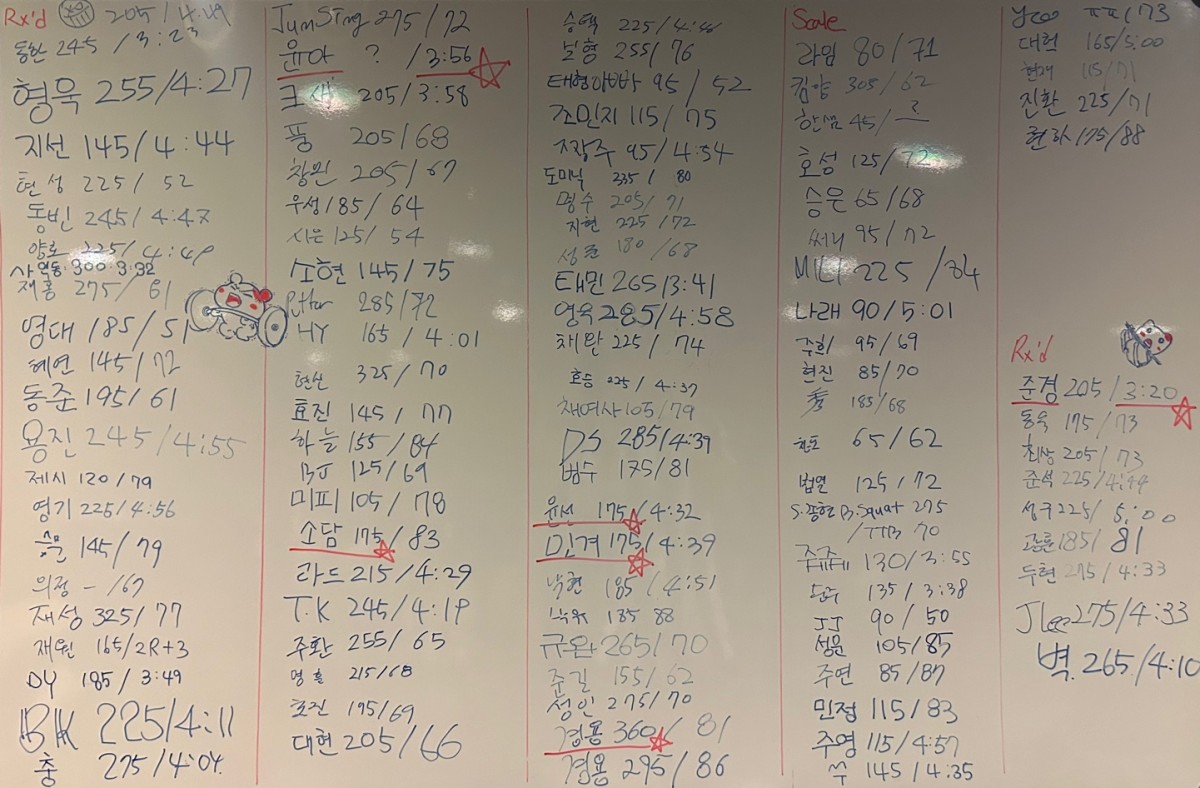 Rx'd 205/4:49
동한 245 /3:23
형욱 255/4:27
지선 145/4:44
현성 225/ 52
동빈 245/4:47
양호 225/4:49
300 3:32
재홍 275/61
영대 185/51
혜연 145/72
동준 195/61
용진 245/4:55
제시 120/79
영기 225/4:56
145/79
의정 - /67
재성 325/77
재원 165/2R+3
DY 185/3:49
BK 225/4:11
충 275/4:04
JumSting 275/72
윤아 ? /3:56
205/3:58
풍 205/68
창원 205/67
우성 185/64
시은 125/54
소현 145/75
Putter 285/72
HY 165/4:01
현선 325/70
효진 145/77
하늘 155/84
BJ 125/69
미피 105/78
소담 175/83
라드 215/4:29
T.K 245/4:19
주환 255/65
명훈 215/68
효진 195/69
대현 205/66
승택 225/4:46
보형 255/76
태형아빠 95/52
조민지 115/75
95/4:54
도미닉 235/80
명수 205/71
지현 225/72
성준 180/68
태민 265/3:41
영욱 285/4:58
채완 225/74
효승 225/4:37
채여사 105/79
DS 285/4:39
범수 175/81
윤선 175/4:32
민겨 175/4:39
낙현 185/4:51
185 88
규완 265/70
준길 155/62
성인 275/70
경용 360/81
경용 295/86
Scale
라임 80/71
김양 305/62
한샘 45/ ?
호성 125/72
승은 65/68
써니 95/72
MILI 225/84
나래 90/5:01
주희 95/69
현진 85/70
185/68
65/62
법열 125/72
S.종현 B.Squat 275
/TTB 70
쥬쥬 130/3:55
135/3:38
JJ 90/50
성윤 105/85
주연 85/87
민정 115/83
주영 115/4:57
쑤 145/4:35
Yeo /73
대현 165/5:00
현재 115/71
진환 225/71
현하 175/88
Rx'd
준경 205/3:20
동욱 175/73
최상 205/73
준석 225/4:44
성구 225/5:00
185/81
두현 275/4:33
JLee 275/4:33
벽. 265/4:10